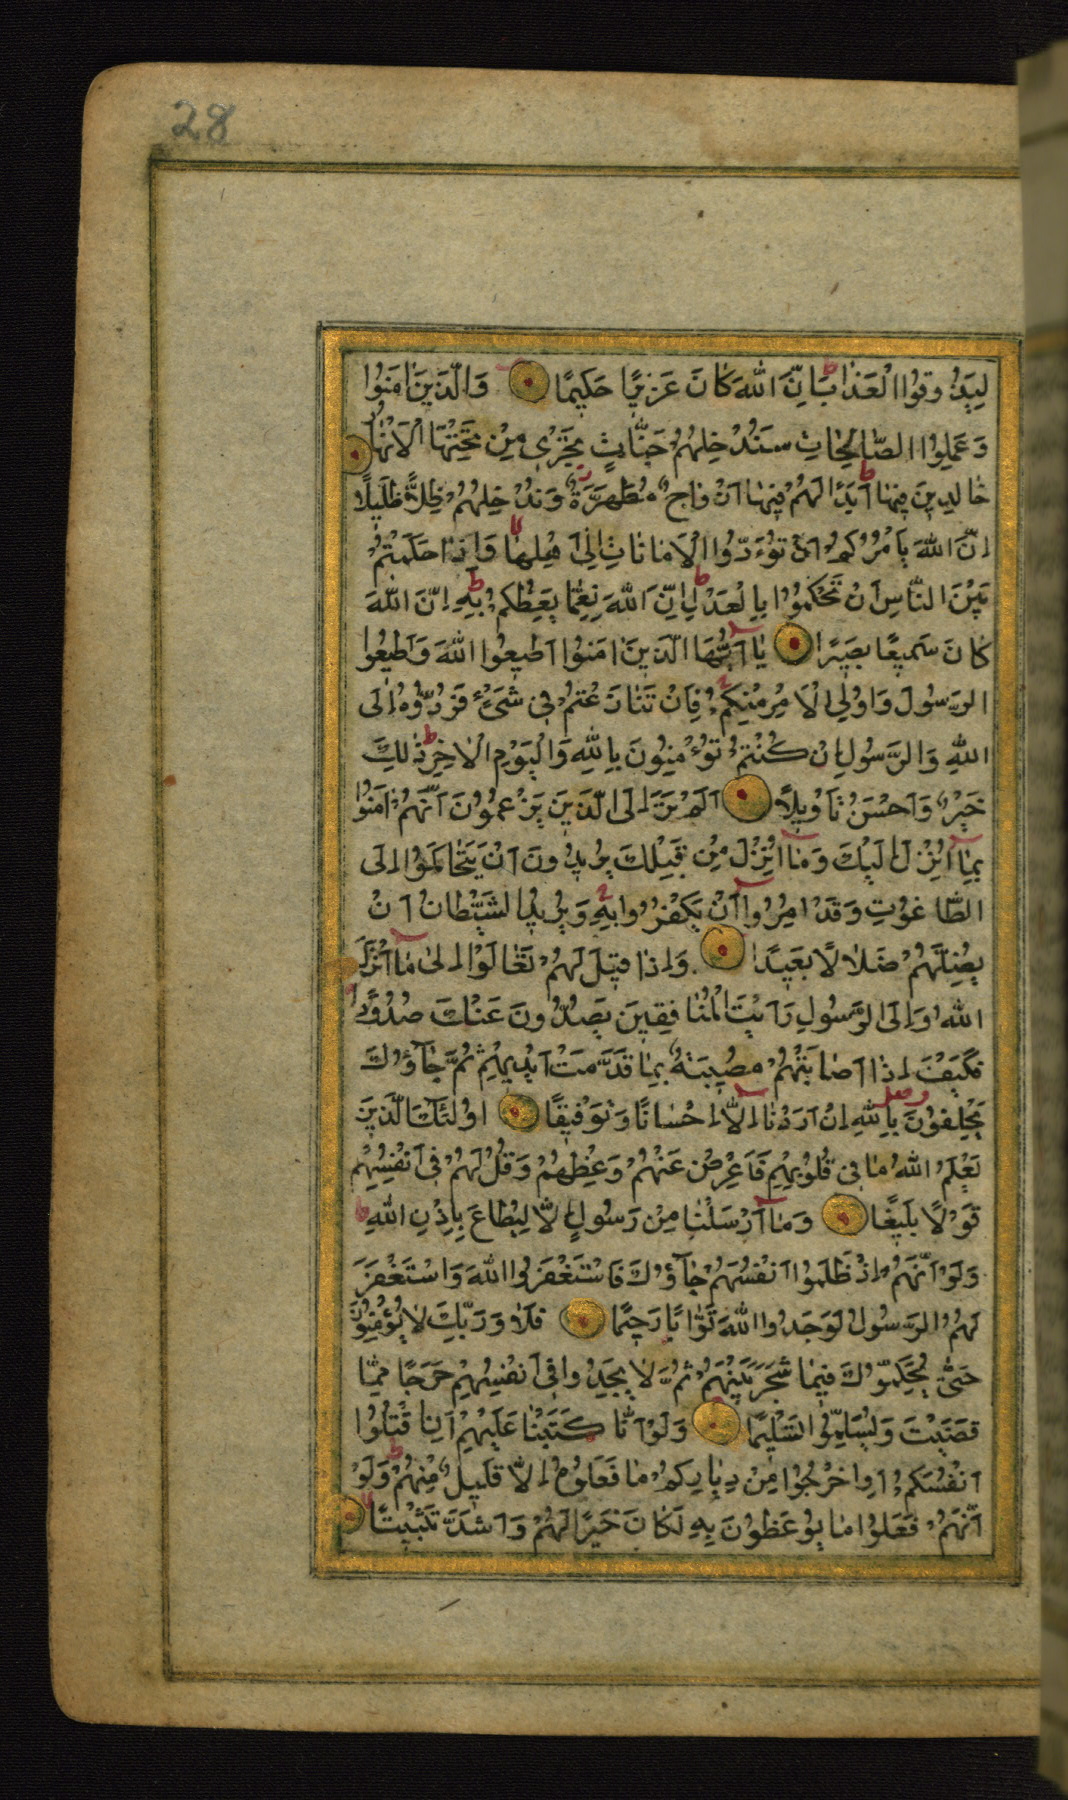 28
لِيَذُوقُوا الْعَذَابَ اِنَّ اللّٰهَ كَانَ عَزِيزًا حَكِيمًا وَالَّذِينَ اٰمَنُوا
وَعَمِلُوا الصَّالِحَاتِ سَنُدْخِلُهُمْ جَنَّاتٍ تَجْرِى مِنْ تَحْتِهَا الْاَنْهَارُ
خَالِدِينَ فِيهَا اَبَدًا لَهُمْ فِيهَا اَزْوَاجٌ مُطَهَّرَةٌ وَنُدْخِلُهُمْ ظِلًّا ظَلِيلًا
اِنَّ اللّٰهَ يَاْمُرُكُمْ اَنْ تُؤَدُّوا الْاَمَانَاتِ اِلٰى اَهْلِهَا وَاِذَا حَكَمْتُمْ
بَيْنَ النَّاسِ اَنْ تَحْكُمُوا بِالْعَدْلِ اِنَّ اللّٰهَ نِعِمَّا يَعِظُكُمْ بِهِ اِنَّ اللّٰهَ
كَانَ سَمِيعًا بَصِيرًا يَا اَيُّهَا الَّذِينَ اٰمَنُوا اَطِيعُوا اللّٰهَ وَاَطِيعُوا
الرَّسُولَ وَاُولِى الْاَمْرِ مِنْكُمْ فَاِنْ تَنَازَعْتُمْ فِى شَىْءٍ فَرُدُّوهُ اِلَى
اللّٰهِ وَالرَّسُولِ اِنْ كُنْتُمْ تُؤْمِنُونَ بِاللّٰهِ وَالْيَوْمِ الْاٰخِرِ ذٰلِكَ
خَيْرٌ وَاَحْسَنُ تَاْوِيلًا اَلَمْ تَرَ اِلَى الَّذِينَ يَزْعُمُونَ اَنَّهُمْ اٰمَنُوا
بِمَا اُنْزِلَ اِلَيْكَ وَمَا اُنْزِلَ مِنْ قَبْلِكَ يُرِيدُونَ اَنْ يَتَحَاكَمُوا اِلَى
الطَّاغُوتِ وَقَدْ اُمِرُوا اَنْ يَكْفُرُوا بِهِ وَيُرِيدُ الشَّيْطَانُ اَنْ
يُضِلَّهُمْ ضَلَالًا بَعِيدًا وَاِذَا قِيلَ لَهُمْ تَعَالَوْا اِلٰى مَا اَنْزَلَ
اللّٰهُ وَاِلَى الرَّسُولِ رَاَيْتَ الْمُنَافِقِينَ يَصُدُّونَ عَنْكَ صُدُودًا
فَكَيْفَ اِذَا اَصَابَتْهُمْ مُصِيبَةٌ بِمَا قَدَّمَتْ اَيْدِيهِمْ ثُمَّ جَاؤُكَ
يَحْلِفُونَ بِاللّٰهِ اِنْ اَرَدْنَا اِلَّا اِحْسَانًا وَتَوْفِيقًا اُولٰئِكَ الَّذِينَ
يَعْلَمُ اللّٰهُ مَا فِى قُلُوبِهِمْ فَاَعْرِضْ عَنْهُمْ وَعِظْهُمْ وَقُلْ لَهُمْ فِى اَنْفُسِهِمْ
قَوْلًا بَلِيغًا وَمَا اَرْسَلْنَا مِنْ رَسُولٍ اِلَّا لِيُطَاعَ بِاِذْنِ اللّٰهِ
وَلَوْ اَنَّهُمْ اِذْ ظَلَمُوا اَنْفُسَهُمْ جَاؤُكَ فَاسْتَغْفَرُوا اللّٰهَ وَاسْتَغْفَرَ
لَهُمُ الرَّسُولُ لَوَجَدُوا اللّٰهَ تَوَّابًا رَحِيمًا فَلَا وَرَبِّكَ لَا يُؤْمِنُونَ
حَتّٰى يُحَكِّمُوكَ فِيمَا شَجَرَ بَيْنَهُمْ ثُمَّ لَا يَجِدُوا فِى اَنْفُسِهِمْ حَرَجًا مِمَّا
قَضَيْتَ وَيُسَلِّمُوا تَسْلِيمًا وَلَوْ اَنَّا كَتَبْنَا عَلَيْهِمْ اَنِ اقْتُلُوا
اَنْفُسَكُمْ اَوِ اخْرُجُوا مِنْ دِيَارِكُمْ مَا فَعَلُوهُ اِلَّا قَلِيلٌ مِنْهُمْ وَلَوْ
اَنَّهُمْ فَعَلُوا مَا يُوعَظُونَ بِهِ لَكَانَ خَيْرًا لَهُمْ وَاَشَدَّ تَثْبِيتًا